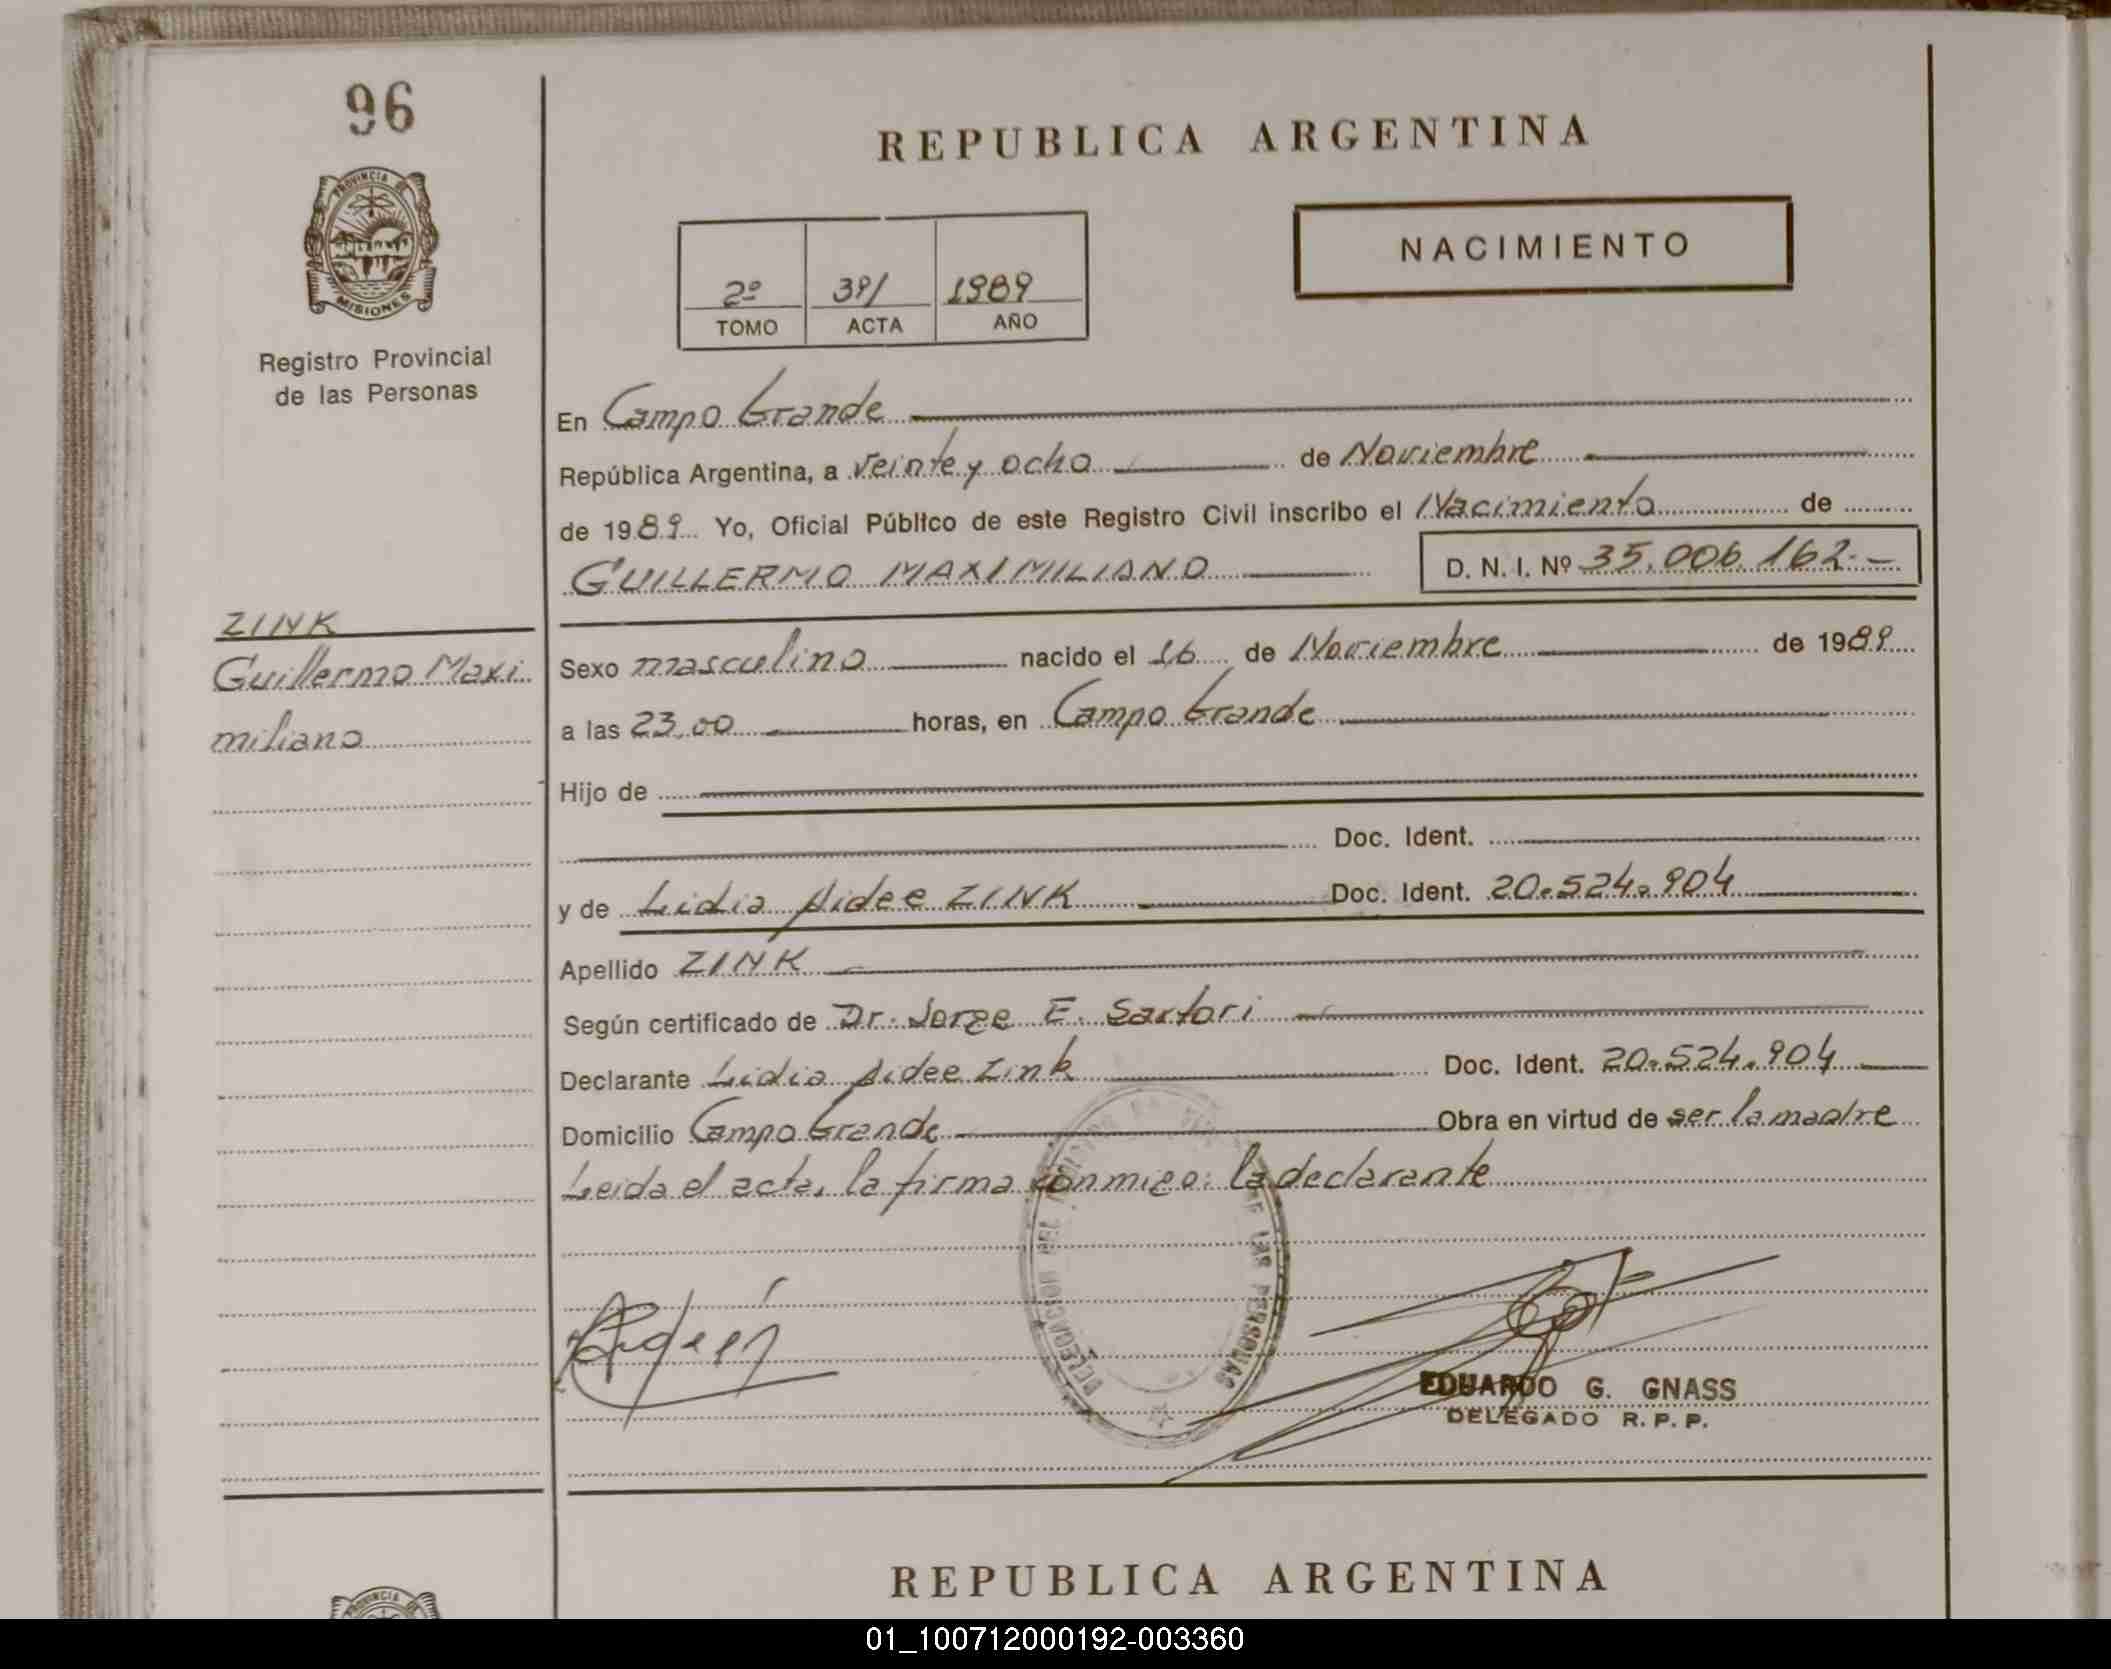 96
PROVINCIA DE
MISIONES
Registro Provincial
de las Personas
REPUBLICA ARGENTINA
NACIMIENTO
2º 391 1989
TOMO ACTA AÑO
En Campo Grande
República Argentina, a veinte y ocho de Noviembre
de 1989 Yo, Oficial Público de este Registro Civil inscribo el Nacimiento de
GUILLERMO MAXIMILIANO D. N. I. Nº 35.006.162.-
ZINK
Guillermo Maxi
miliano
Sexo masculino nacido el 16 de Noviembre de 1989
a las 23,00 horas, en Campo Grande
Hijo de
Doc. Ident.
y de Lidia Aidee ZINK Doc. Ident. 20.524.904
Apellido ZINK
Según certificado de Dr. Jorge E. Sartori
Declarante Lidia Aidee Zink Doc. Ident. 20.524.904
Domicilio Campo Grande Obra en virtud de ser la madre
Leida el acta, la firma conmigo: la declarante
DE LAS PERSONAS
EDUARDO G. GNASS
DELEGADO R. P. P.
REPUBLICA ARGENTINA
PROVINCIA DE
01_100712000192-003360